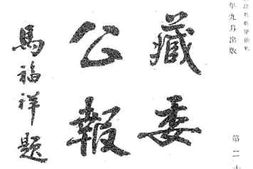 年九月出版
第二十
藏委
公報
馬福祥題